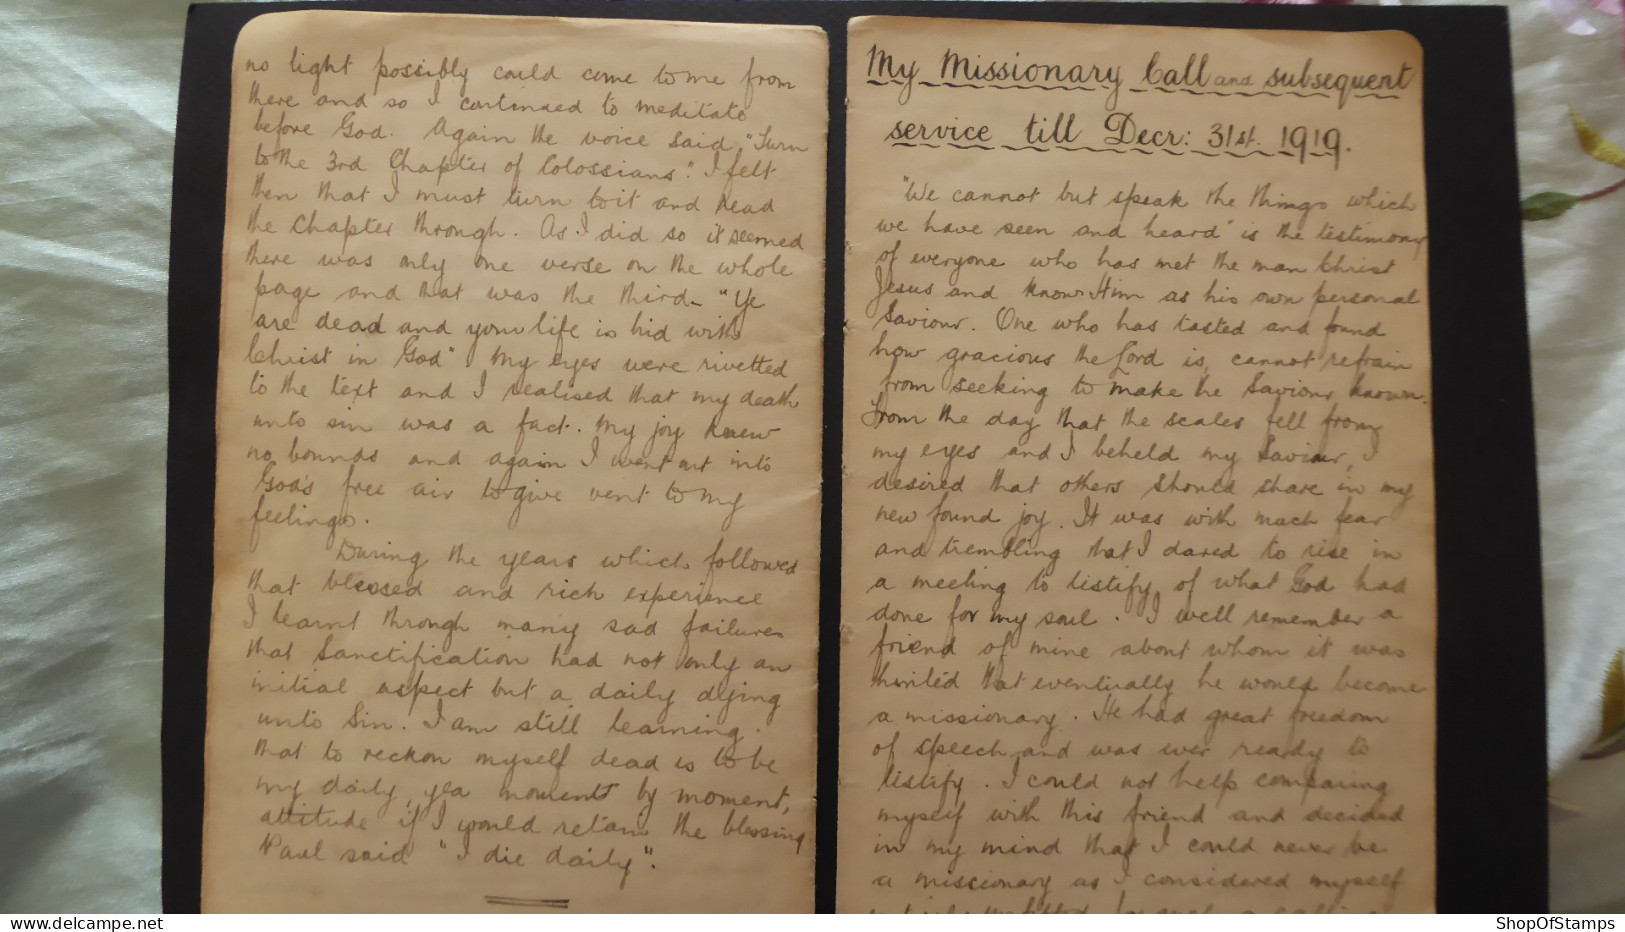 no light possibly could come to me from
there and so I continued to meditate
before God. Again the voice said "Turn
to the 3rd Chapter of Colossians". I felt
then that I must turn to it and read
the Chapter through. As I did so it seemed
there was only one verse on the whole
page and that was the third - "Ye
are dead and your life is hid with
Christ in God" My eyes were rivetted
to the text and I realised that my death
unto sin was a fact. My joy knew
no bounds and again I went out into
God's free air to give vent to my
feelings.
During the years which followed
that blessed and rich experience
I learnt through many sad failures
that Sanctification had not only an
initial aspect but a daily dying
unto Sin. I am still learning
that to reckon myself dead is to be
my daily, yea moment by moment,
attitude if I would retain the blessing
Paul said "I die daily".
My Missionary Call and subsequent
service till Decr: 31st. 1919.
"We cannot but speak the things which
we have seen and heard" is the testimony
of everyone who has met the man Christ
Jesus and know Him as his own personal
Saviour. One who has tasted and found
how gracious the Lord is, cannot refrain
from seeking to make the Saviour known.
From the day that the scales fell from
my eyes and I beheld my Saviour, I
desired that others should share in my
new found joy. It was with much fear
and trembling that I dared to rise in
a meeting to testify of what God had
done for my soul. I well remember a
friend of mine about whom it was
hinted that eventually he would become
a missionary. He had great freedom
of speech and was ever ready to
testify. I could not help comparing
myself with this friend and decided
in my mind that I could never be
a missionary as I considered myself
ShopOfStamps